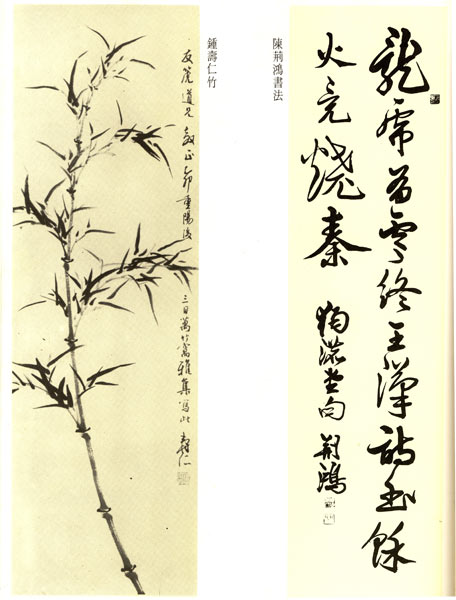 陳荊鴻書法
龍虎雲終王漢詩書餘
火竟燒秦 獨漉堂句 荊鴻
鍾壽仁竹
友道兄 正 卯重陽後
三日萬竹雅集寫此 壽仁